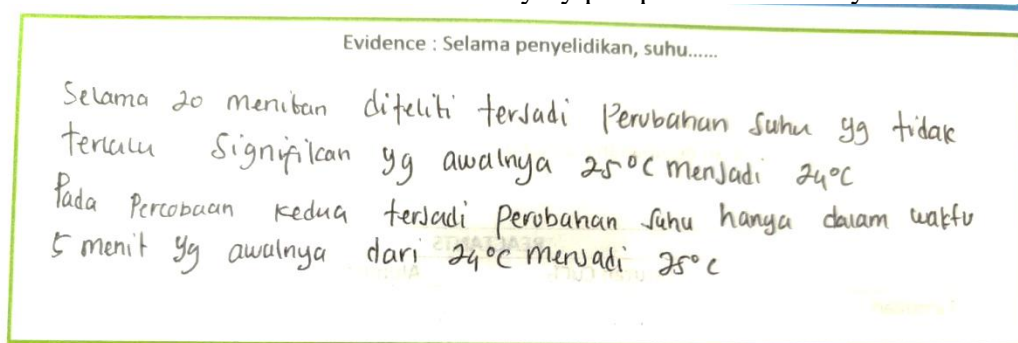 Evidence : Selama penyelidikan, suhu......
Selama 20 menitan diteliti terjadi Perubahan suhu yg tidak
terlalu Signifikan yg awalnya 25°C menjadi 24°C
Pada Percobaan kedua terjadi perubahan suhu hanya dalam waktu
5 menit yg awalnya dari 24°C menjadi 25°C